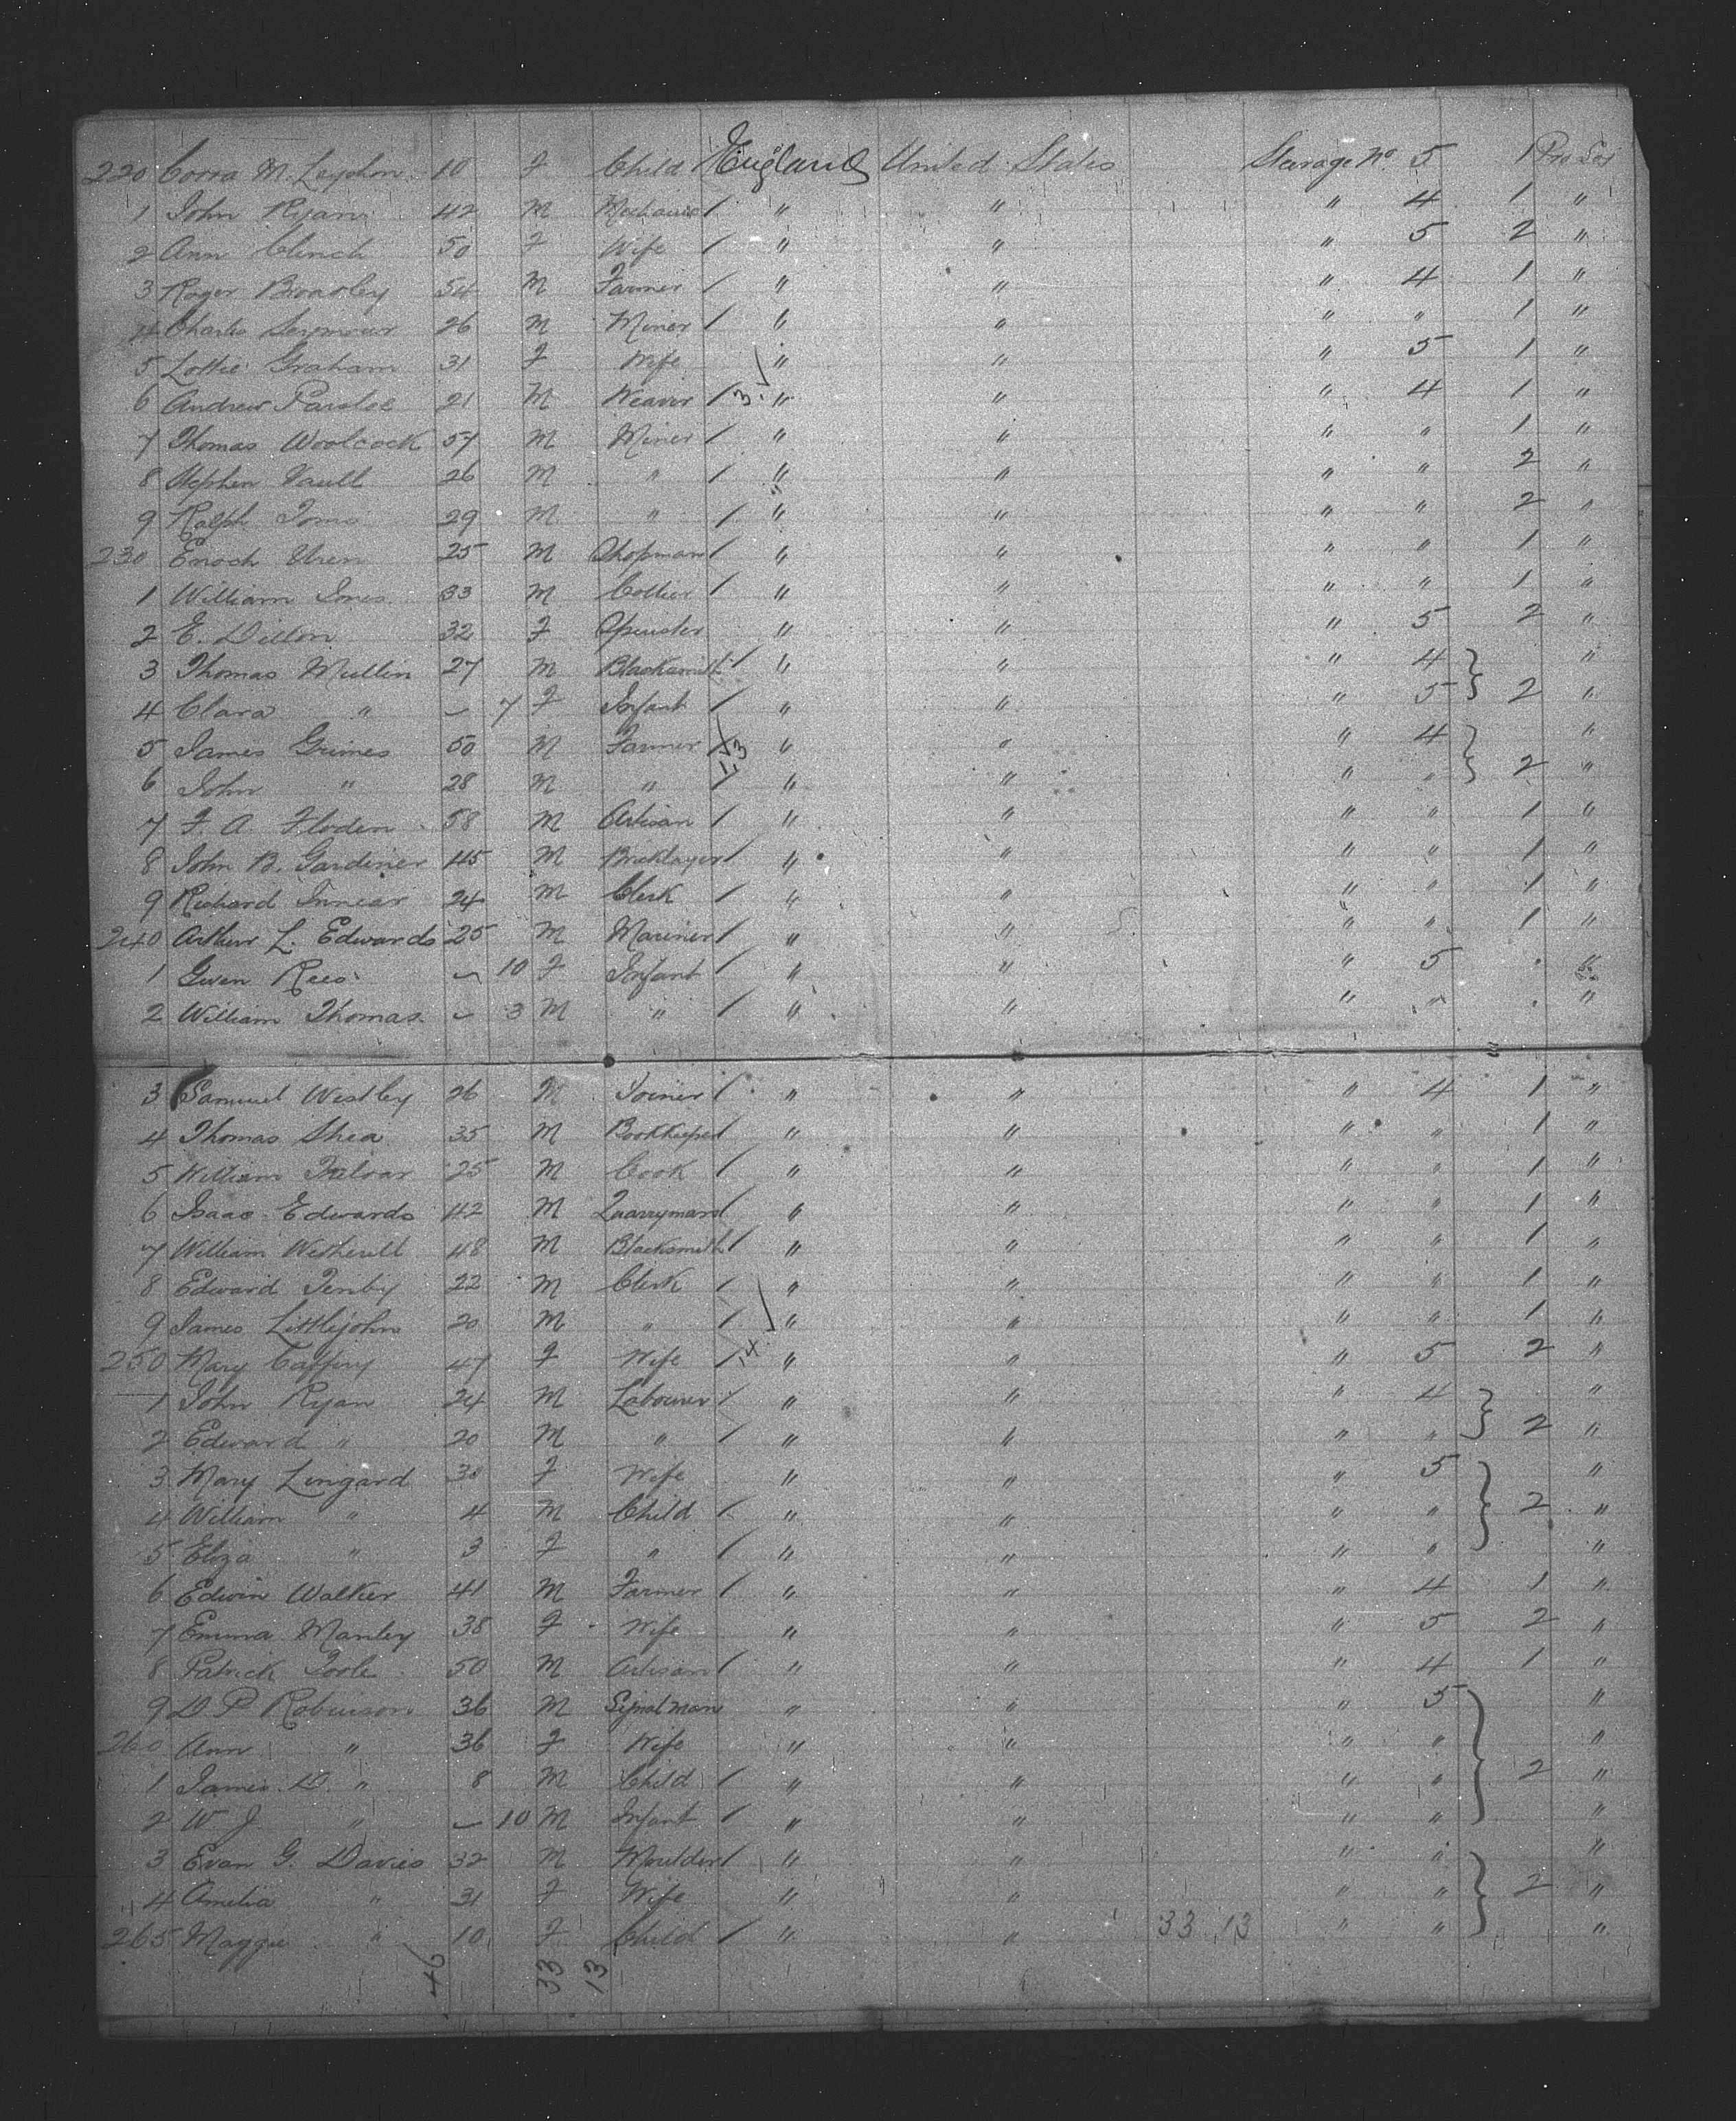 220 Corra M. Leyshon 10 F Child England United States Steerage No. 5 1 Pro Soj
1 John Ryan 42 M Mechanic / " " " 4 1 "
2 Ann Clinch 50 F Wife / " " " 5 2 "
3 Roger Brearley 54 M Farmer / " " " 4 1 "
4 Charles Seymour 26 M Miner / " " " " 1 "
5 Lottie Graham 31 F Wife " " " 5 1 "
6 Andrew 21 M Weaver / 3 " " " 4 1 "
7 Thomas Woolcock 57 M Miner / " " " " 1 "
8 Stephen Vault 26 M " / " " " " 2 "
9 Ralph Toms 29 M " / " " " " 2 "
230 Enoch Uren 25 M Shopman / " " " " 1 "
1 William Jones 33 M Collier / " " " " 1 "
2 E. Dillon 32 F Spinster " " " 5 2 "
3 Thomas Mullin 27 M Blacksmith / " " " 4 "
4 Clara " – 7 F Infant / " " " 5 2 "
5 James Grimes 50 M Farmer / 13 " " " 4 "
6 John " 28 M " / " " " " 2 "
7 F. A. Floden 58 M Artisan / " " " " 1 "
8 John B. Gardiner 45 M Bricklayer / " " " " 1 "
9 Richard 24 M Clerk / " " " " 1 "
240 Arthur L. Edwards 25 M Mariner / " " " " 1 "
1 Gwen Rees – 10 F Infant / " " " 5 "
2 William Thomas – 3 M " / " " " " "
3 Samuel Westley 26 M Joiner / " " " 4 1 "
4 Thomas Shea 35 M Bookkeeper / " " " " 1 "
5 William 25 M Cook / " " " " 1 "
6 Isaac Edwards 42 M Quarryman / " " " " 1 "
7 William Wetherell 48 M Blacksmith / " " " " 1 "
8 Edward Tenby 22 M Clerk / " " " " 1 "
9 James Littlejohn 20 M " / " " " " 1 "
250 Mary Caffery 47 F Wife / 14 " " " 5 2 "
1 John Ryan 24 M Labourer / " " " 4 "
2 Edward " 20 M " / " " " " 2 "
3 Mary Lingard 30 F Wife " " " 5 "
4 William " 4 M Child / " " " " 2 "
5 Eliza " 3 F " / " " " " "
6 Edwin Walker 41 M Farmer / " " " 4 1 "
7 Emma Manley 38 F Wife " " " 5 2 "
8 Patrick Toole 50 M Artisan / " " " 4 1 "
9 D P Robinson 36 M Signalman " " " 5 "
260 Ann " 36 F Wife " " " " "
1 James D. " 8 M Child / " " " " 2 "
2 W J " – 10 M Infant / " " " " "
3 Evan G. Davies 32 M Moulder / " " " " "
4 Amelia " 31 F Wife " " " " 2 "
265 Maggie " 10 F Child / " " 33 13 " " "
46 33 13